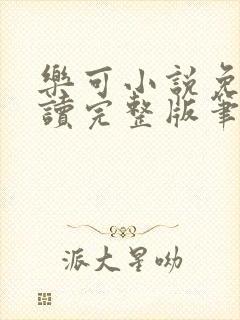 樂可小說免
讀完整版筆
派大星呦